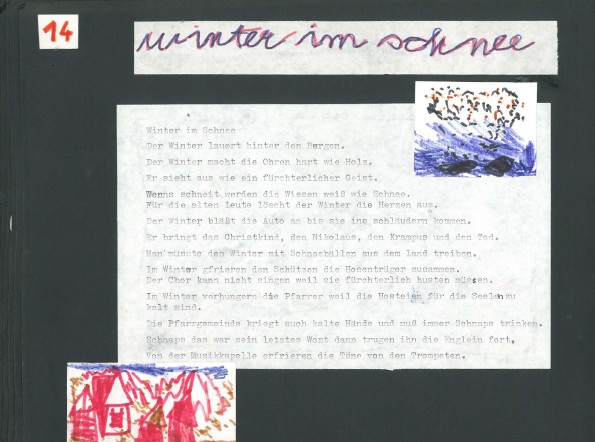 14
winter im schnee
Winter im Schnee
Der Winter lauert hinter den Bergen.
Der Winter macht die Ohren hart wie Holz.
Er sieht aus wie ein fürchterlicher Geist.
Wenns schneit werden die Wiesen weiß wie Schnee.
Für die alten Leute löscht der Winter die Herzen aus.
Der Winter bläßt die Auto an bis sie ins schläudern kommen.
Er bringt das Christkind, den Nikolaus, den Krampus und den Tod.
Man müsste den Winter mit Schneebällen aus dem Land treiben.
Im Winter gfrieren den Schützen die Hosenträger zusammen.
Der Chor kann nicht singen weil sie fürchterlich husten müssen.
Im Winter verhungern die Pfarrer weil die Hostien für die Seelen zu
kalt sind.
Die Pfarrgemeinde kriegt auch kalte Hände und muß immer Schnaps trinken.
Schnaps das war sein letztes Wort dann trugen ihn die Englein fort,
Von der Musikkapelle erfrieren die Töne von den Trompeten.